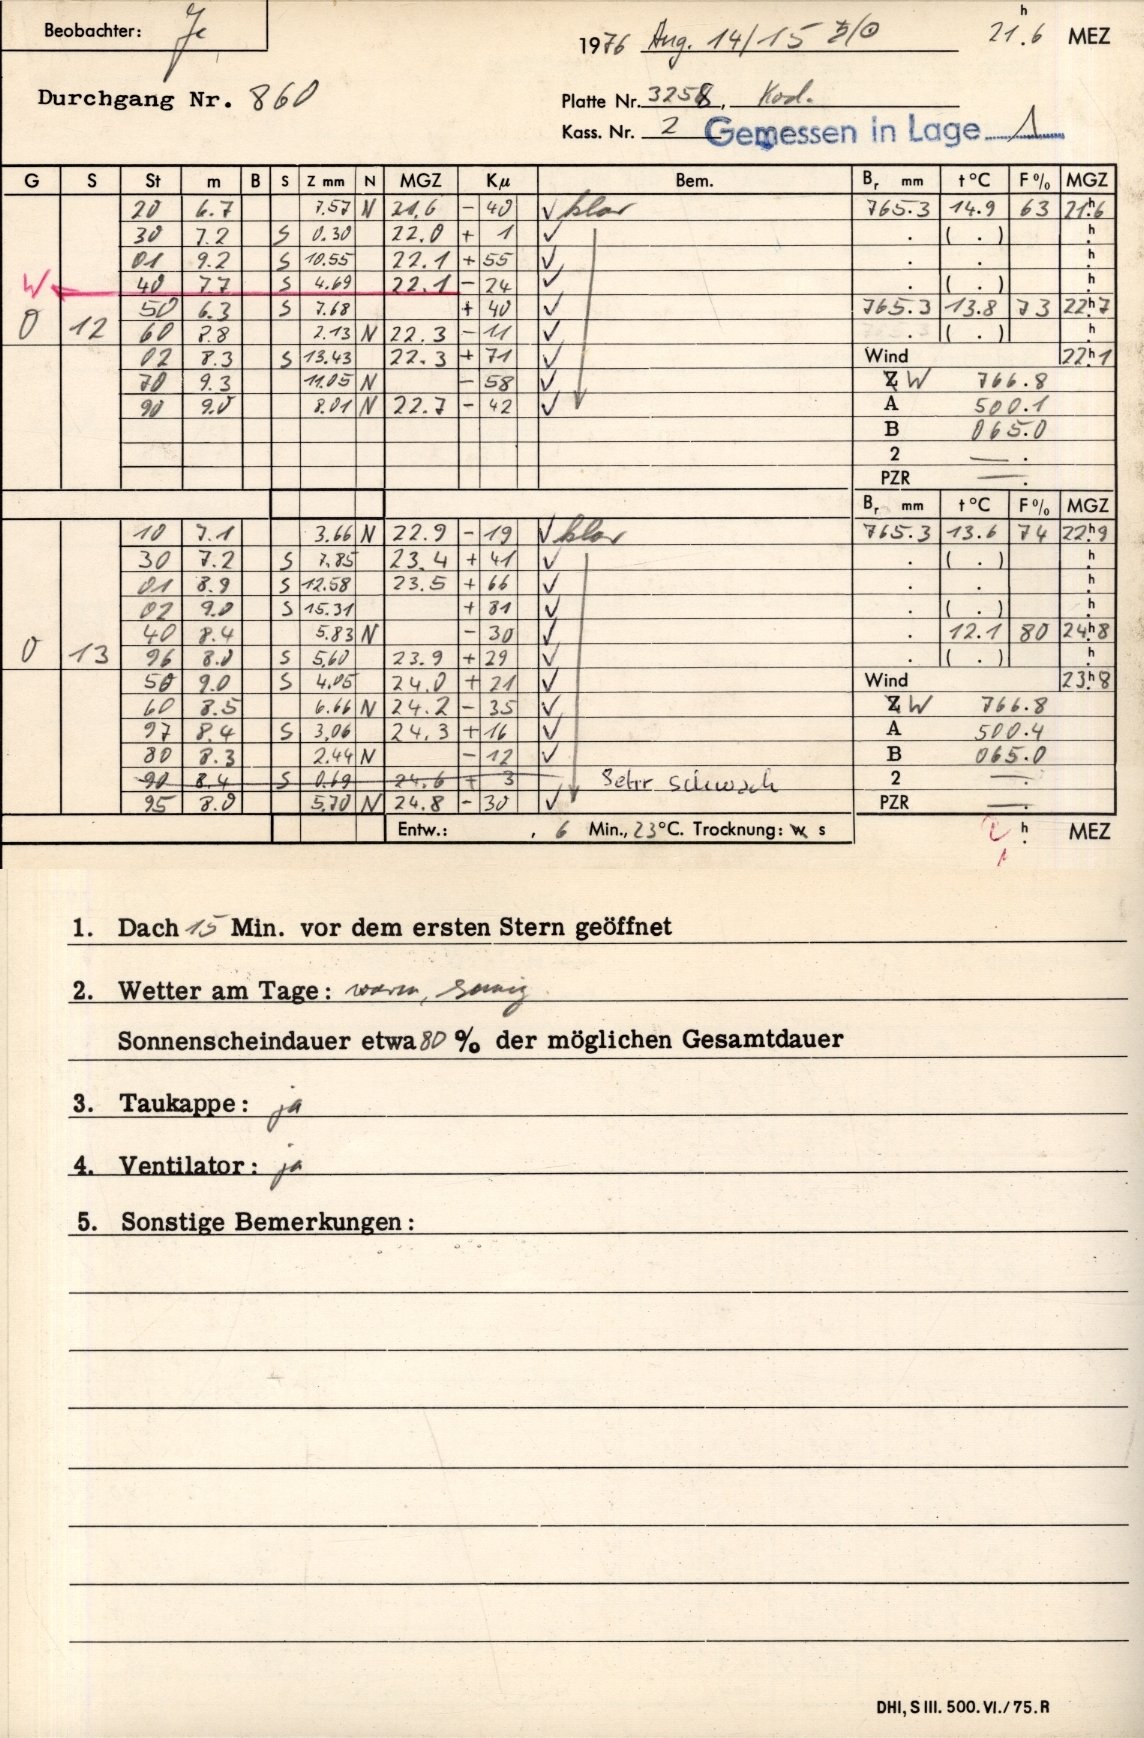 Beobachter: Je
1976 Aug. 14/15 ♄/☉ 21.ʰ6 MEZ
Durchgang Nr. 860
Platte Nr. 3258, Kod.
Kass. Nr. 2 Gemessen in Lage 1
G S St m B S Z mm N MGZ Kμ Bem. Bᵣ mm t°C F% MGZ
20 6.7 7.57 N 21.6 - 40 √ klar 765.3 14.9 63 21ʰ.6
30 7.2 S 0.30 22.0 + 1 √ . ( . ) ʰ.
01 9.2 S 10.55 22.1 + 55 √ . . ʰ.
W 40 7.7 S 4.69 22.1 - 24 √ . ( . ) ʰ.
50 6.3 S 7.68 + 40 √ 765.3 13.8 73 22ʰ.7
O 12 60 8.8 2.13 N 22.3 - 11 √ ( . ) ʰ.
02 8.3 S 13.43 22.3 + 71 √ Wind 22ʰ.1
70 9.3 11.05 N - 58 √ Z W 766.8
90 9.0 8.01 N 22.7 - 42 √ A 500.1
B 065.0
2 — .
PZR — .
Bᵣ mm t°C F% MGZ
10 7.1 3.66 N 22.9 - 19 √ klar 765.3 13.6 74 22ʰ.9
30 7.2 S 7.85 23.4 + 41 √ . ( . ) ʰ.
01 8.9 S 12.58 23.5 + 66 √ . . ʰ.
02 9.0 S 15.31 + 81 √ . ( . ) ʰ.
40 8.4 5.83 N - 30 √ . 12.1 80 24ʰ.8
O 13 96 8.0 S 5,60 23.9 + 29 √ . ( . ) ʰ.
50 9.0 S 4.05 24.0 + 21 √ Wind 23ʰ.8
60 8.5 6.66 N 24.2 - 35 √ Z W 766.8
97 8.4 S 3,06 24.3 + 16 √ A 500.4
80 8.3 2.44 N - 12 √ B 065.0
90 8.4 S 0.69 24.6 + 3 Sehr schwach 2 — .
95 8.0 5,70 N 24.8 - 30 √ PZR — .
Entw.: , 6 Min., 23°C. Trocknung: w s ʰ. MEZ
1. Dach 15 Min. vor dem ersten Stern geöffnet
2. Wetter am Tage: warm, sonnig
Sonnenscheindauer etwa 80 % der möglichen Gesamtdauer
3. Taukappe: ja
4. Ventilator: ja
5. Sonstige Bemerkungen:
DHI, S III. 500. VI./75. R